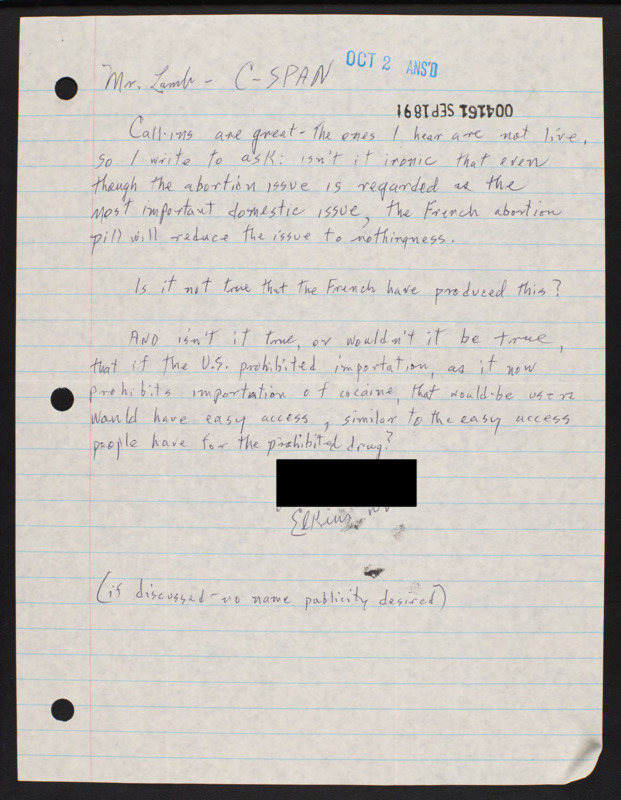 Mr. Lamb - C-SPAN
OCT 2 ANS'D
004161 SEP 18 91
Call-ins are great - the ones I hear are not live,
so I write to ask: isn't it ironic that even
though the abortion issue is regarded as the
most important domestic issue, the French abortion
pill will reduce the issue to nothingness.
Is it not true that the French have produced this?
AND isn't it true, or wouldn't it be true,
that if the U.S. prohibited importation, as it now
prohibits importation of cocaine, that would-be users
would have easy access, similar to the easy access
people have for the prohibited drug?
Elkins
(if discussed - no name publicity desired)